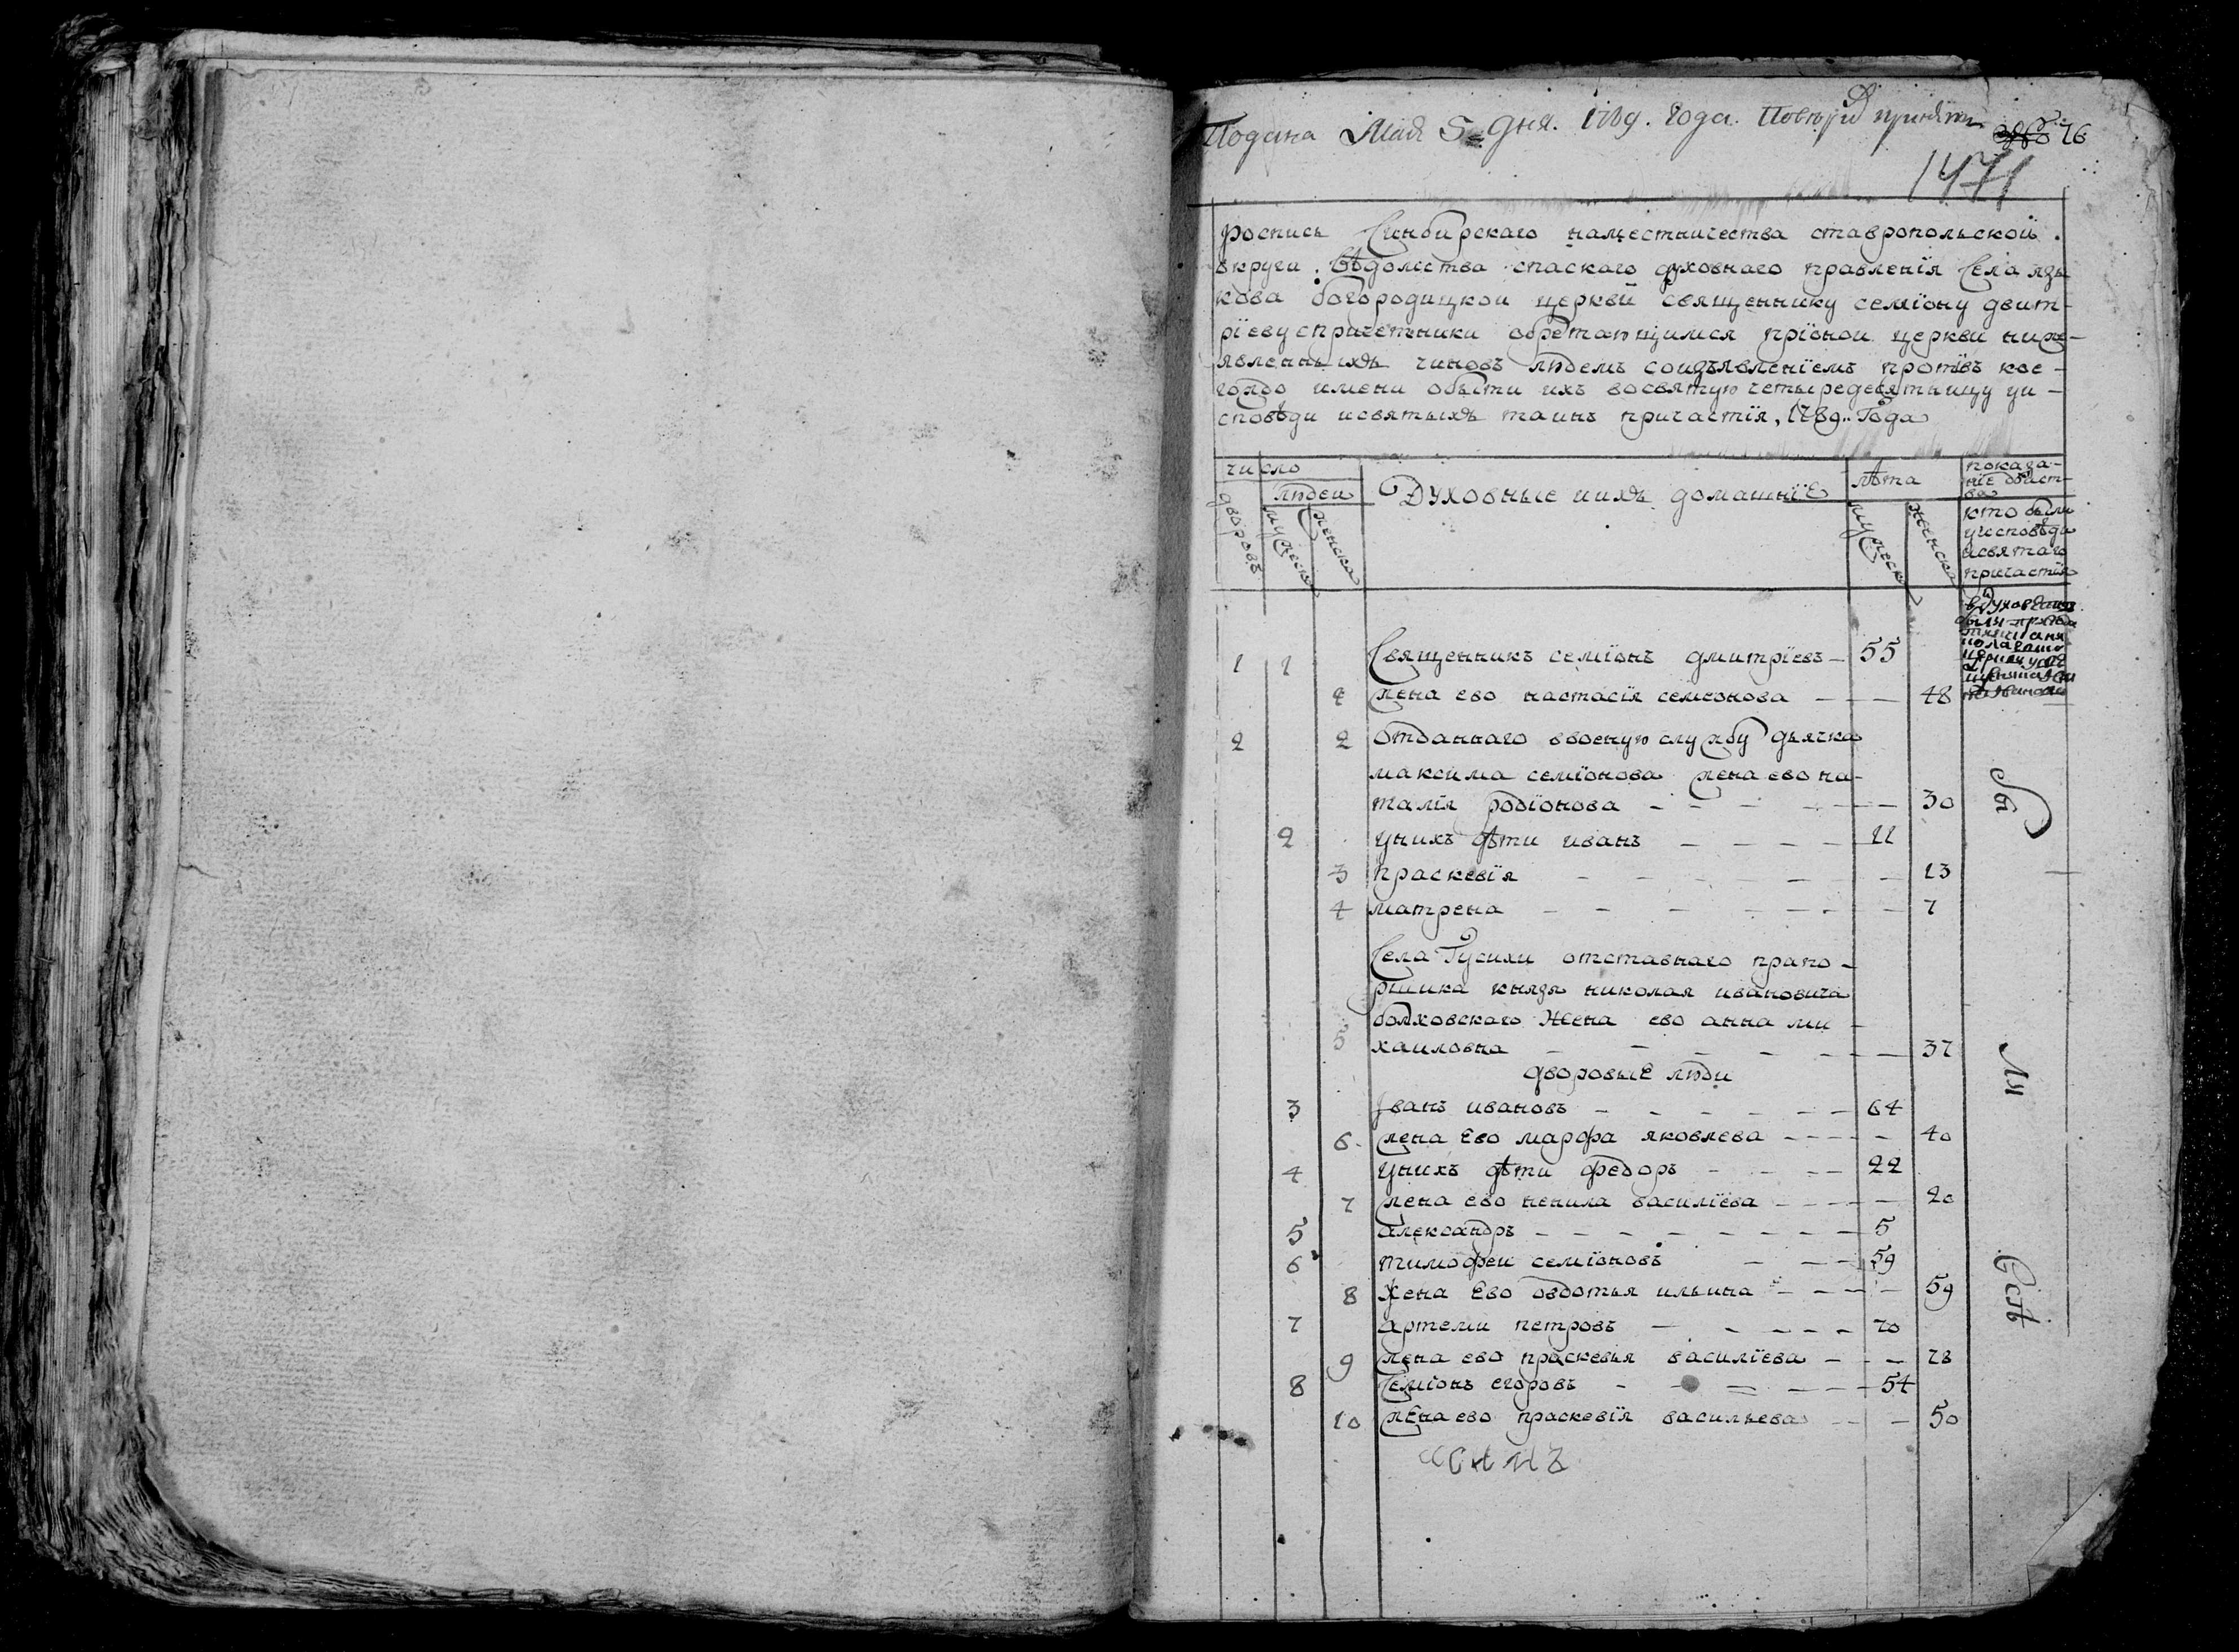 Подана Маія 5 дня. 1789. года.
76
1471
роспись Синбирскаго намѣстничества ставропольской
округи. вѣдомства спаскаго духовнаго правленія Села язы
кова богородицкой церкви священнику семіону дмит-
рїеву спричетники обретающимся прїоной церкви ниже-
явленныхъ чиновъ людемъ соизъявленіемъ противъ кое-
гождо имени обытіи ихъ восвятую четыредесятницу уи-
сповѣди исвятыхъ таинъ причастїя, 1789. Года
число
людеи
дворовъ
мужеска
женска
Духовные иихъ домашнїе
лѣта
мужеск
женска
показа-
нїе обыст-
ва
кто были
уисповѣди
исвятаго
причастїя
1 1 Священникъ семїонъ дмитрїевъ 55
1 жена ево настасїя семионова 48
2 2 отданнаго ввоеную службу дьячка
максима семїонова жена ево на-
талїя родїонова 30
2 унихъ дѣти иванъ 11
3 праскевїя 13
4 матрена 7
Села Гусихи отставнаго прапо-
рщика князя николая ивановича
болховскаго жена ево анна ми-
5 хаиловна 37
дворовые люди
3 Иванъ ивановъ 64
6 жена ево марфа яковлева 40
4 унихъ дѣти федоръ 22
7 жена ево ненила василїева 20
5 александръ 5
6 тимофеи семїоновъ 59
8 жена ево овдотья ильина 59
7 артемии петровъ 70
9 жена ево праскевья василїева 78
8 Семіонъ егоровъ 54
10 жена ево праскевїя васильева 50
бы
ли
всѣ